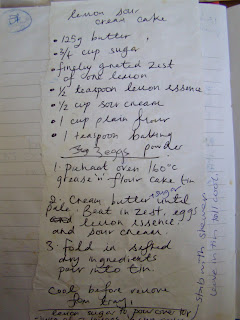 lemon sour
cream cake
• 125g butter,
• 3/4 cup sugar
• finely grated zest
of one lemon
• 1/2 teaspoon lemon essence
• 1/2 cup sour cream
• 1 cup plain flour
• 1 teaspoon baking
powder
3 eggs
1. preheat oven 160°c
grease n flour cake tin
sugar
2. Cream butter until
pale. Beat in zest, eggs
lemon essence
and sour cream.
3. fold in sifted
dry ingredients
pour into tin.
Cool before remove
from tray,
lemon sugar to pour over top
stab with skewer
leave in tin till cool